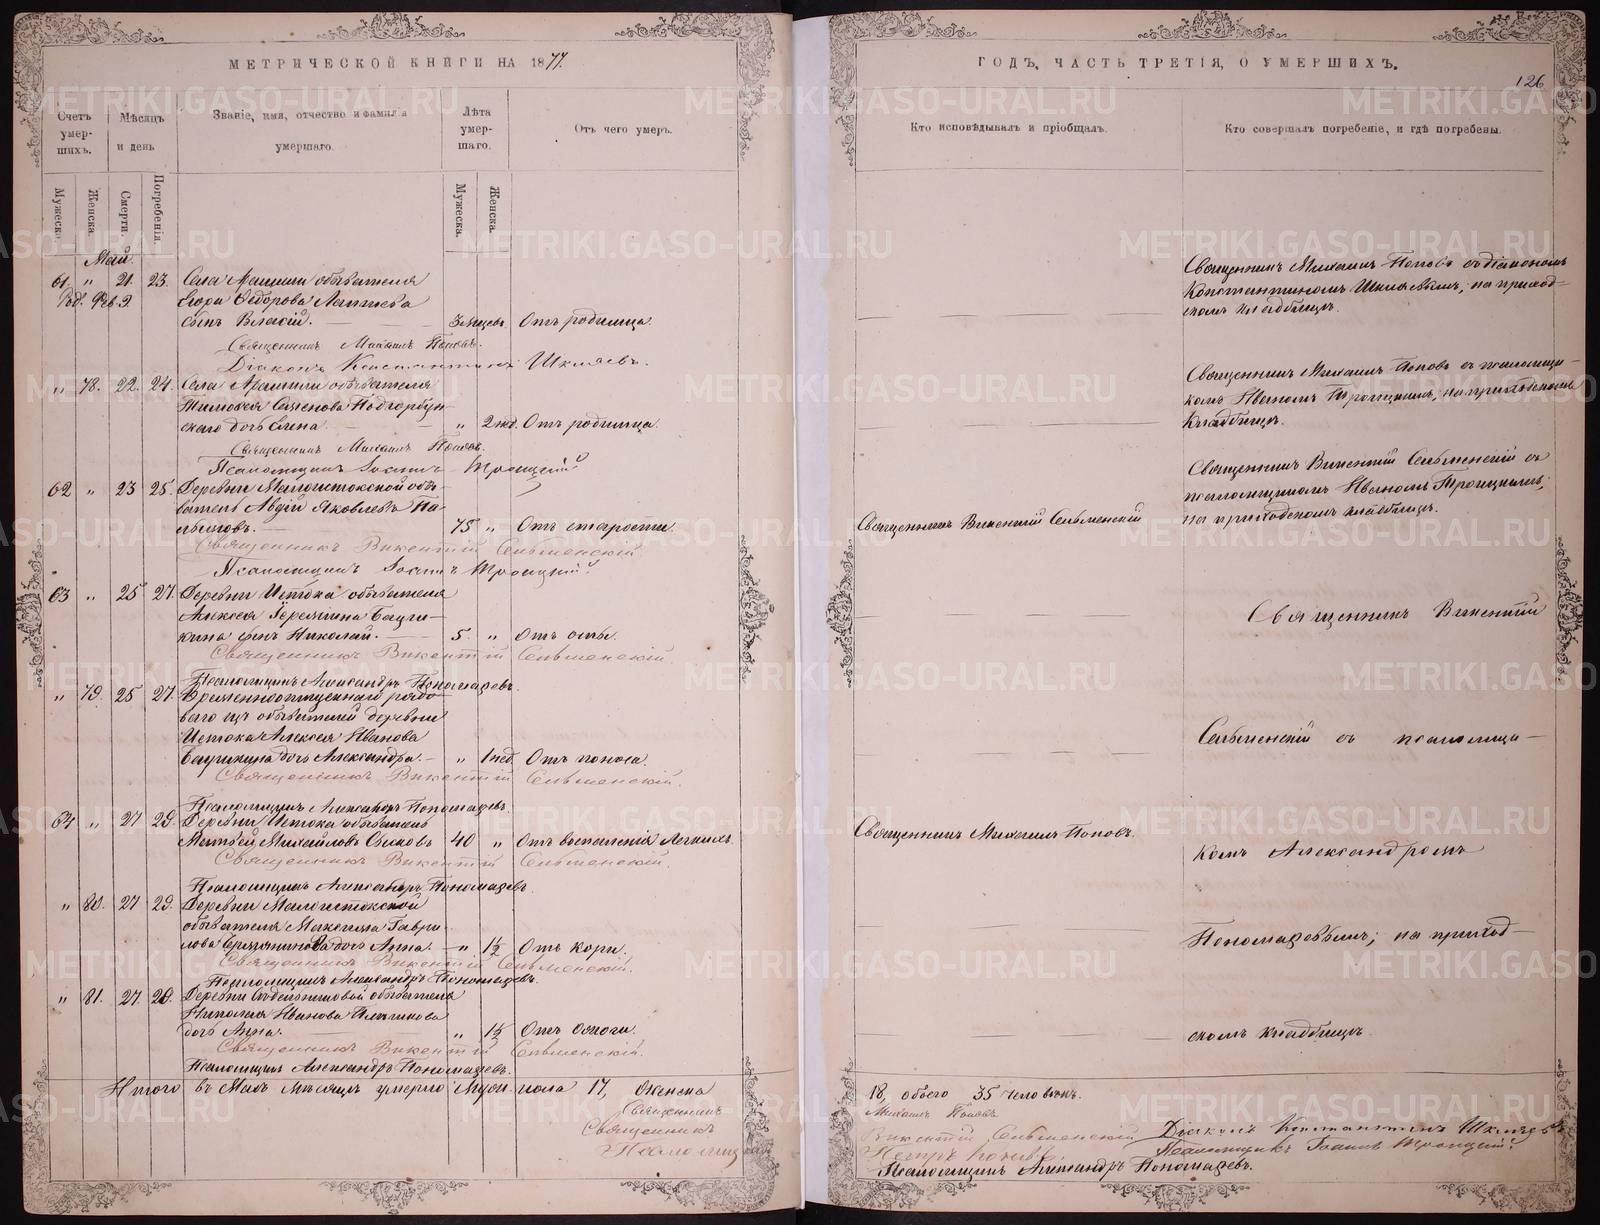 МЕТРИЧЕСКОЙ КНИГИ НА 1877
Счетъ умер-шихъ.
Мѣсяцъ и день
Званіе, имя, отчество и фамилія умершаго.
Лѣта умер-шаго.
Отъ чего умеръ.
Мужеска.
Женска.
Смерти.
Погребенія.
Мужеска.
Женска.
Май.
61. " 21. 23. Села Арамили обывателя
Федорова
сынъ 3 мѣсяцевъ Отъ родимца.
Священникъ Михаилъ Поповъ.
Діаконъ Константинъ Шкляевъ.
" 78. 22. 24. Села Арамили обывателя
Тимофея Семенова Подгорбун-
скаго дочь Елена. " 2 нед. Отъ родимца.
Священникъ Михаилъ Поповъ.
Псаломщикъ Іоаннъ Троицкій
62 " 23 25. Деревни Малоистокской обы-
ватель Авдій Яковлевъ
75 " Отъ старости.
Священникъ Викентій Сельменскій
Псаломщикъ Іоаннъ Троицкій.
63 " 25 27. Деревни Истока обывателя
Алексея
сынъ Николай. 5. " Отъ оспы.
Священникъ Викентій Сельменскій.
Псаломщикъ Александръ Пономаревъ.
" 79. 25 27. Временноотпускнаго рядо-
ваго изъ обывателей деревни
Истока Алексея Иванова
дочь Александра. " 1 нед. Отъ поноса.
Священникъ Викентій Сельменскій.
Псаломщикъ Александръ Пономаревъ.
64 " 27 29. Деревни Истока обыватель
Матвей Михайловъ 40 " Отъ воспаленія легкихъ.
Священникъ Викентій Сельменскій.
Псаломщикъ Александръ Пономаревъ.
" 80. 27 29. Деревни Малоистокской
обывателя Максима Гаври-
лова дочь Анна. " 1½ Отъ кори.
Священникъ Викентій Сельменскій.
Псаломщикъ Александръ Пономаревъ.
" 81. 27. 29. Деревни обывателя
Николая Иванова
дочь Анна. " 1½ Отъ
Священникъ Викентій Сельменскій.
Псаломщикъ Александръ Пономаревъ.
Итого въ Маѣ мѣсяцѣ умерло Муж. пола 17, Женска
Священникъ
Священникъ
Псаломщикъ
ГОДЪ, ЧАСТЬ ТРЕТІЯ, О УМЕРШИХЪ.
126
Кто исповѣдывалъ и пріобщалъ.
Кто совершалъ погребеніе, и гдѣ погребены.
Священникъ Михаилъ Поповъ съ діакономъ
Константиномъ Шкляевымъ, на приход-
скомъ кладбищѣ.
Священникъ Михаилъ Поповъ съ псаломщи-
комъ Иваномъ Троицкимъ, на приходскомъ
кладбищѣ.
Священникъ Викентій Сельменскій
Священникъ Викентій Сельменскій съ
псаломщикомъ Иваномъ Троицкимъ,
на приходскомъ кладбищѣ.
Священникъ Викентій
Сельменскій съ псаломщи-
Священникъ Михаилъ Поповъ.
комъ Александромъ
Пономаревымъ; на приход-
скомъ кладбищѣ.
18, обоего 35 человѣкъ.
Михаилъ Поповъ.
Викентій Сельменскій Діаконъ Константинъ Шкляевъ
Псаломщикъ Іоаннъ Троицкій.
Псаломщикъ Александръ Пономаревъ.
METRIKI.GASO-URAL.RU